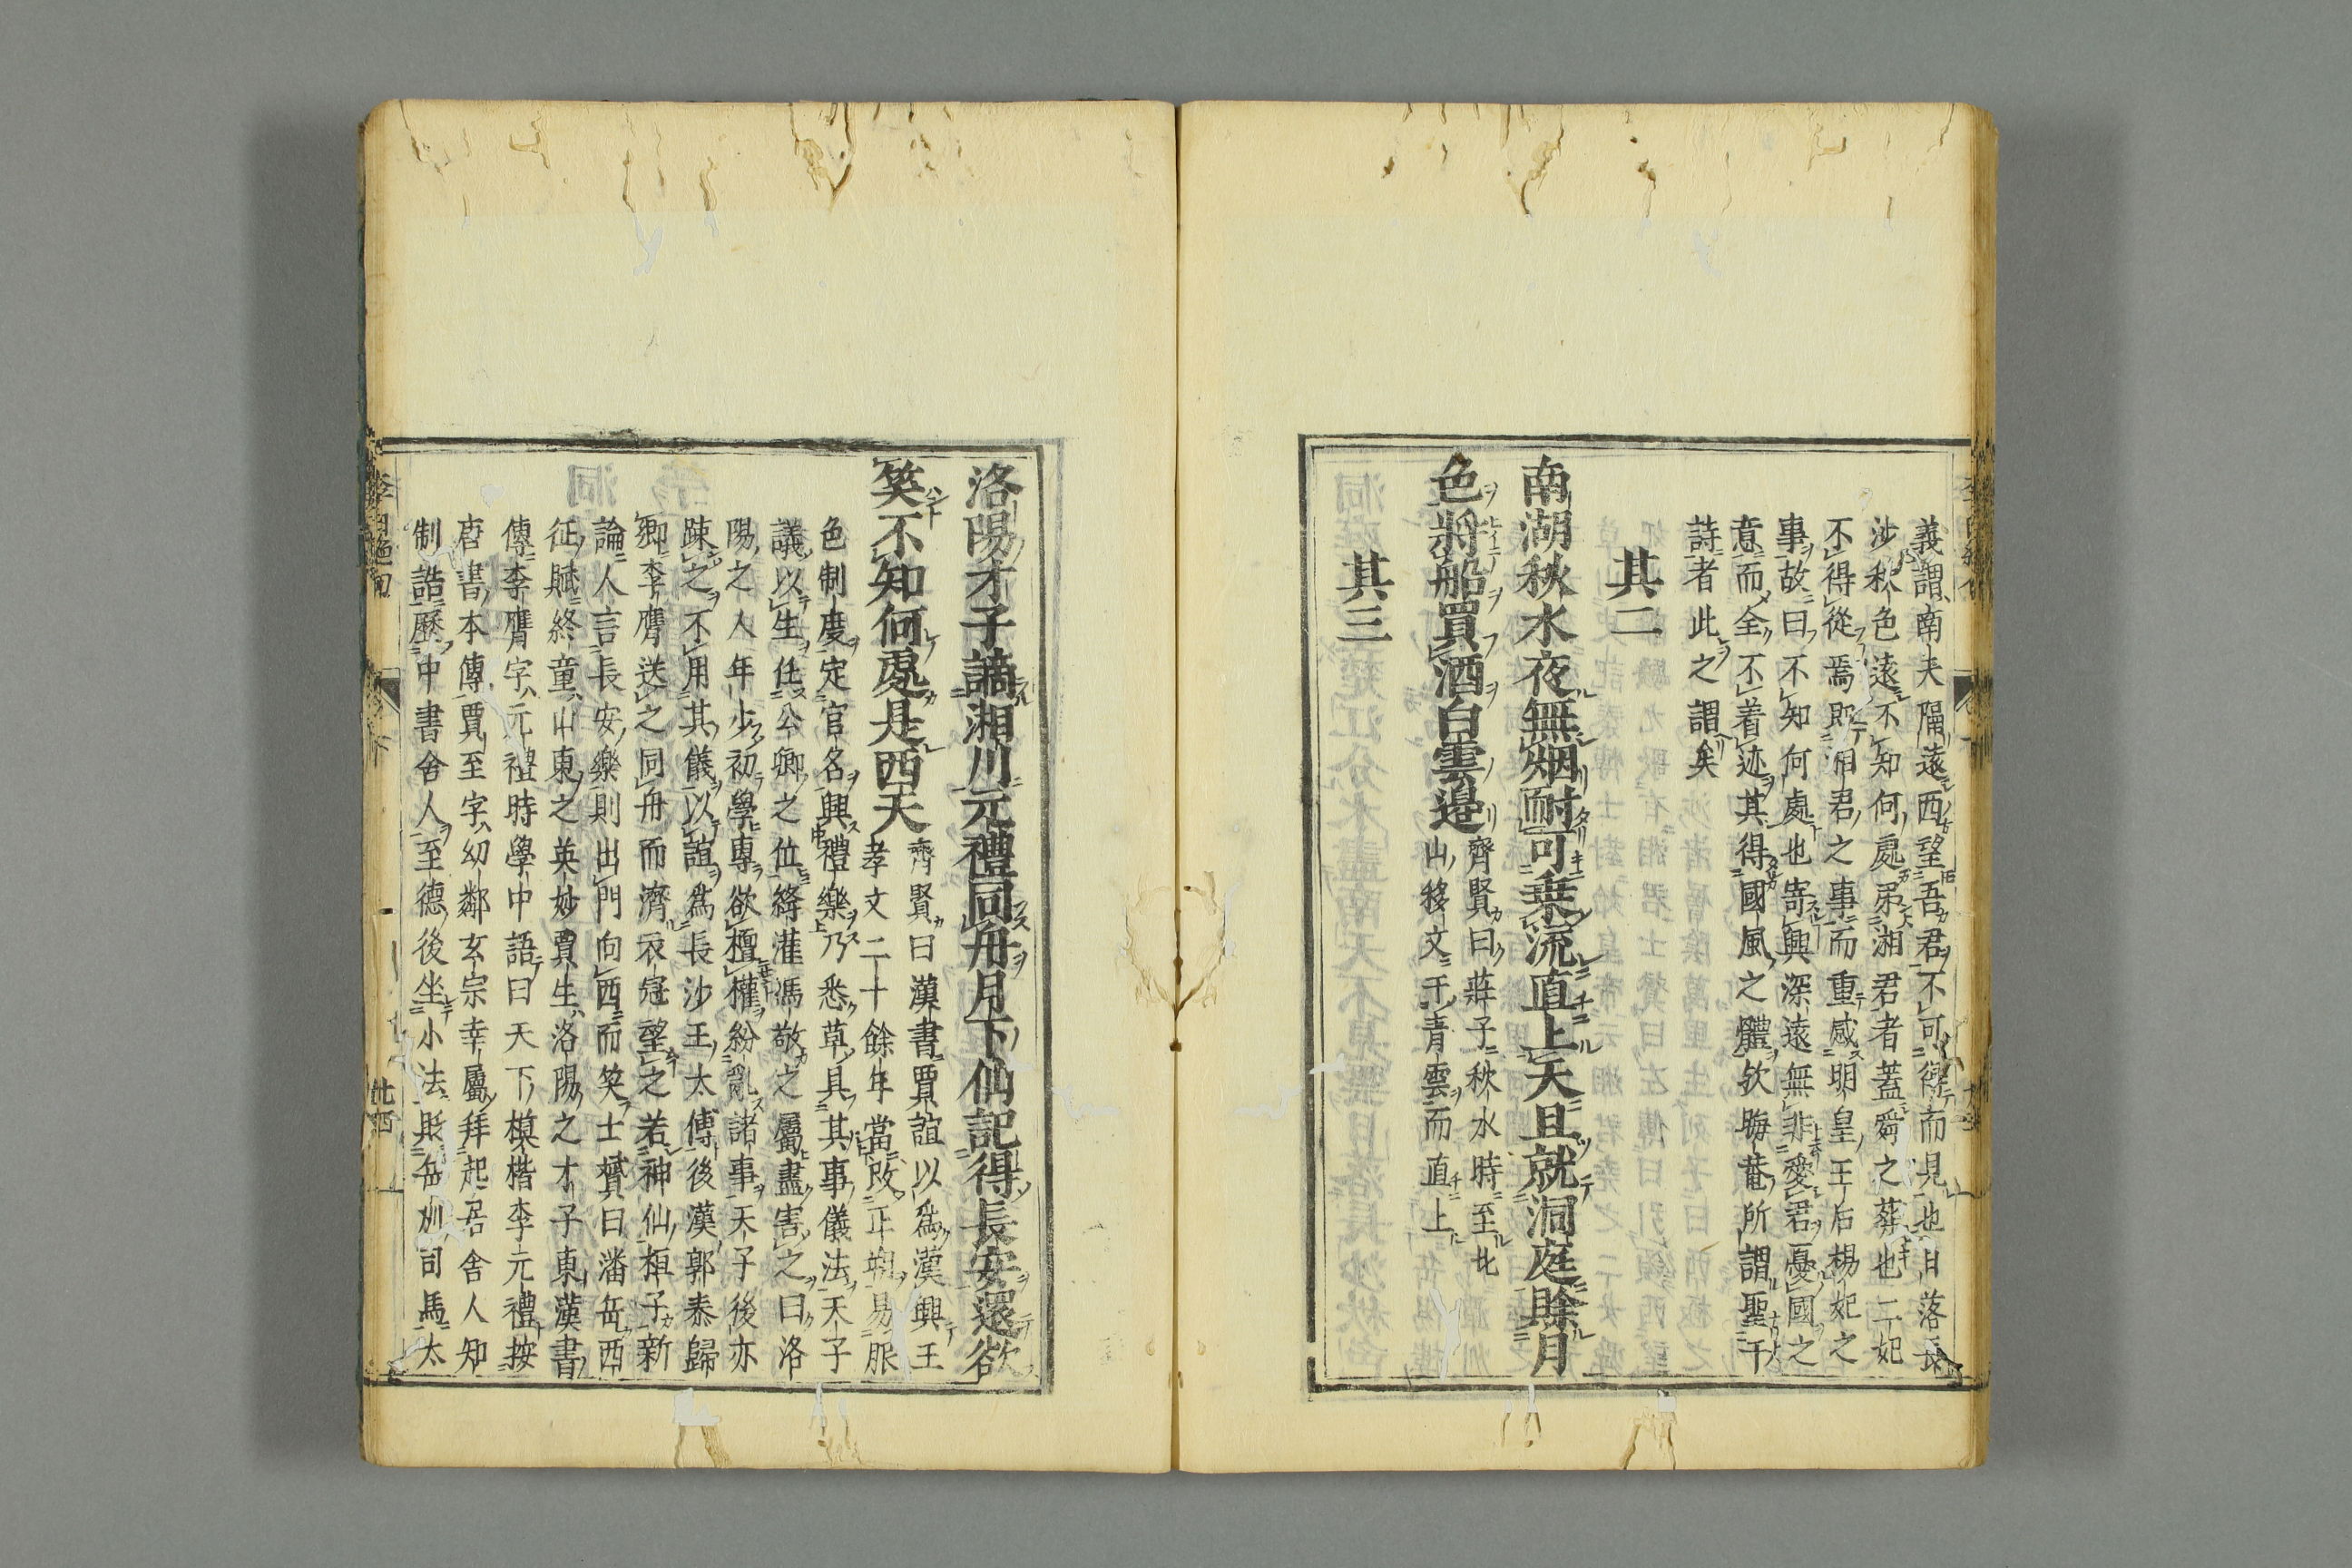 義謂南夫隔遠西望吾君不可得而見也日落長
沙秋色遠不知何處弔湘君者蓋舜之葬也二妃
不得從焉即湘君之事而重感明皇王后楊妃之
事故曰不知何處也寄興深遠無非愛君憂國之
意而全不着迹其得國風之體欤晦菴所謂聖于
詩者此之謂矣
其二
南湖秋水夜無烟耐可乘流直上天且就洞庭賖月
色將船買酒白雲邊
齊賢曰莊子秋水時至北
山移文干青雲而直上
其三
洛陽才子謫湘川元禮同舟月下仙記得長安還欲
笑不知何處是西天
齊賢曰漢書賈誼以為漢興王
孝文二十餘年當改正朔易服
色制度定官名興禮樂乃悉草具其事儀法天子
議以生任公卿之位絳灌馮敬之屬盡害之曰洛
陽之人年少初學專欲擅權紛亂諸事天子後亦
踈之不用其儀以誼為長沙王太傅後漢郭泰歸
卿李膺送之同舟而濟衣冠望之若神仙桓子新
論人言長安樂則出門向西而笑士贇曰潘岳西
征賦終童山東之英妙賈生洛陽之才子東漢書
傳李膺字元禮時學中語曰天下模楷李元禮按
唐書本傳賈至字幼鄰玄宗幸屬拜起居舍人知
制誥歷中書舍人至德後坐小法貶岳州司馬太
李白絶句
下
廿四